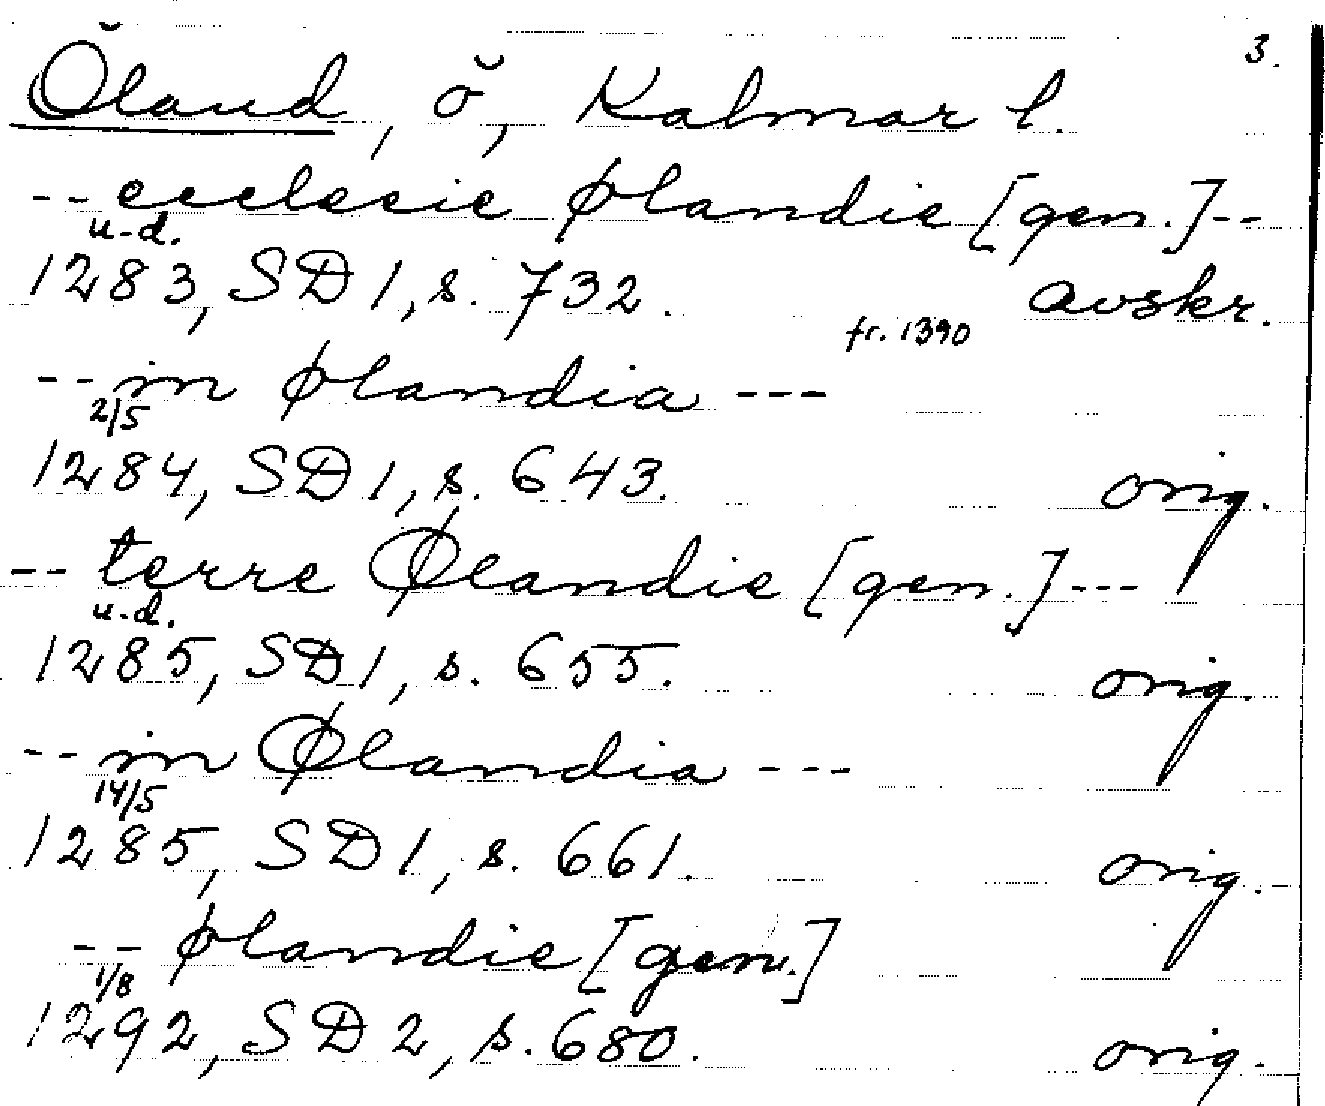 3.
Öland, ö, Kalmar l.
-- ecclesie ølandie [gen.] --
u.d.
1283, SD 1, s. 732. avskr.
fr. 1390
-- in ølandia ---
2/5
1284, SD 1, s. 643. orig.
-- terre Ølandie [gen.] ---
u.d.
1285, SD 1, s. 655. orig.
-- in Ølandia ---
14/5
1285, SD 1, s. 661. orig.
-- ølandie [gen.]
1/8
1292, SD 2, s. 680. orig.